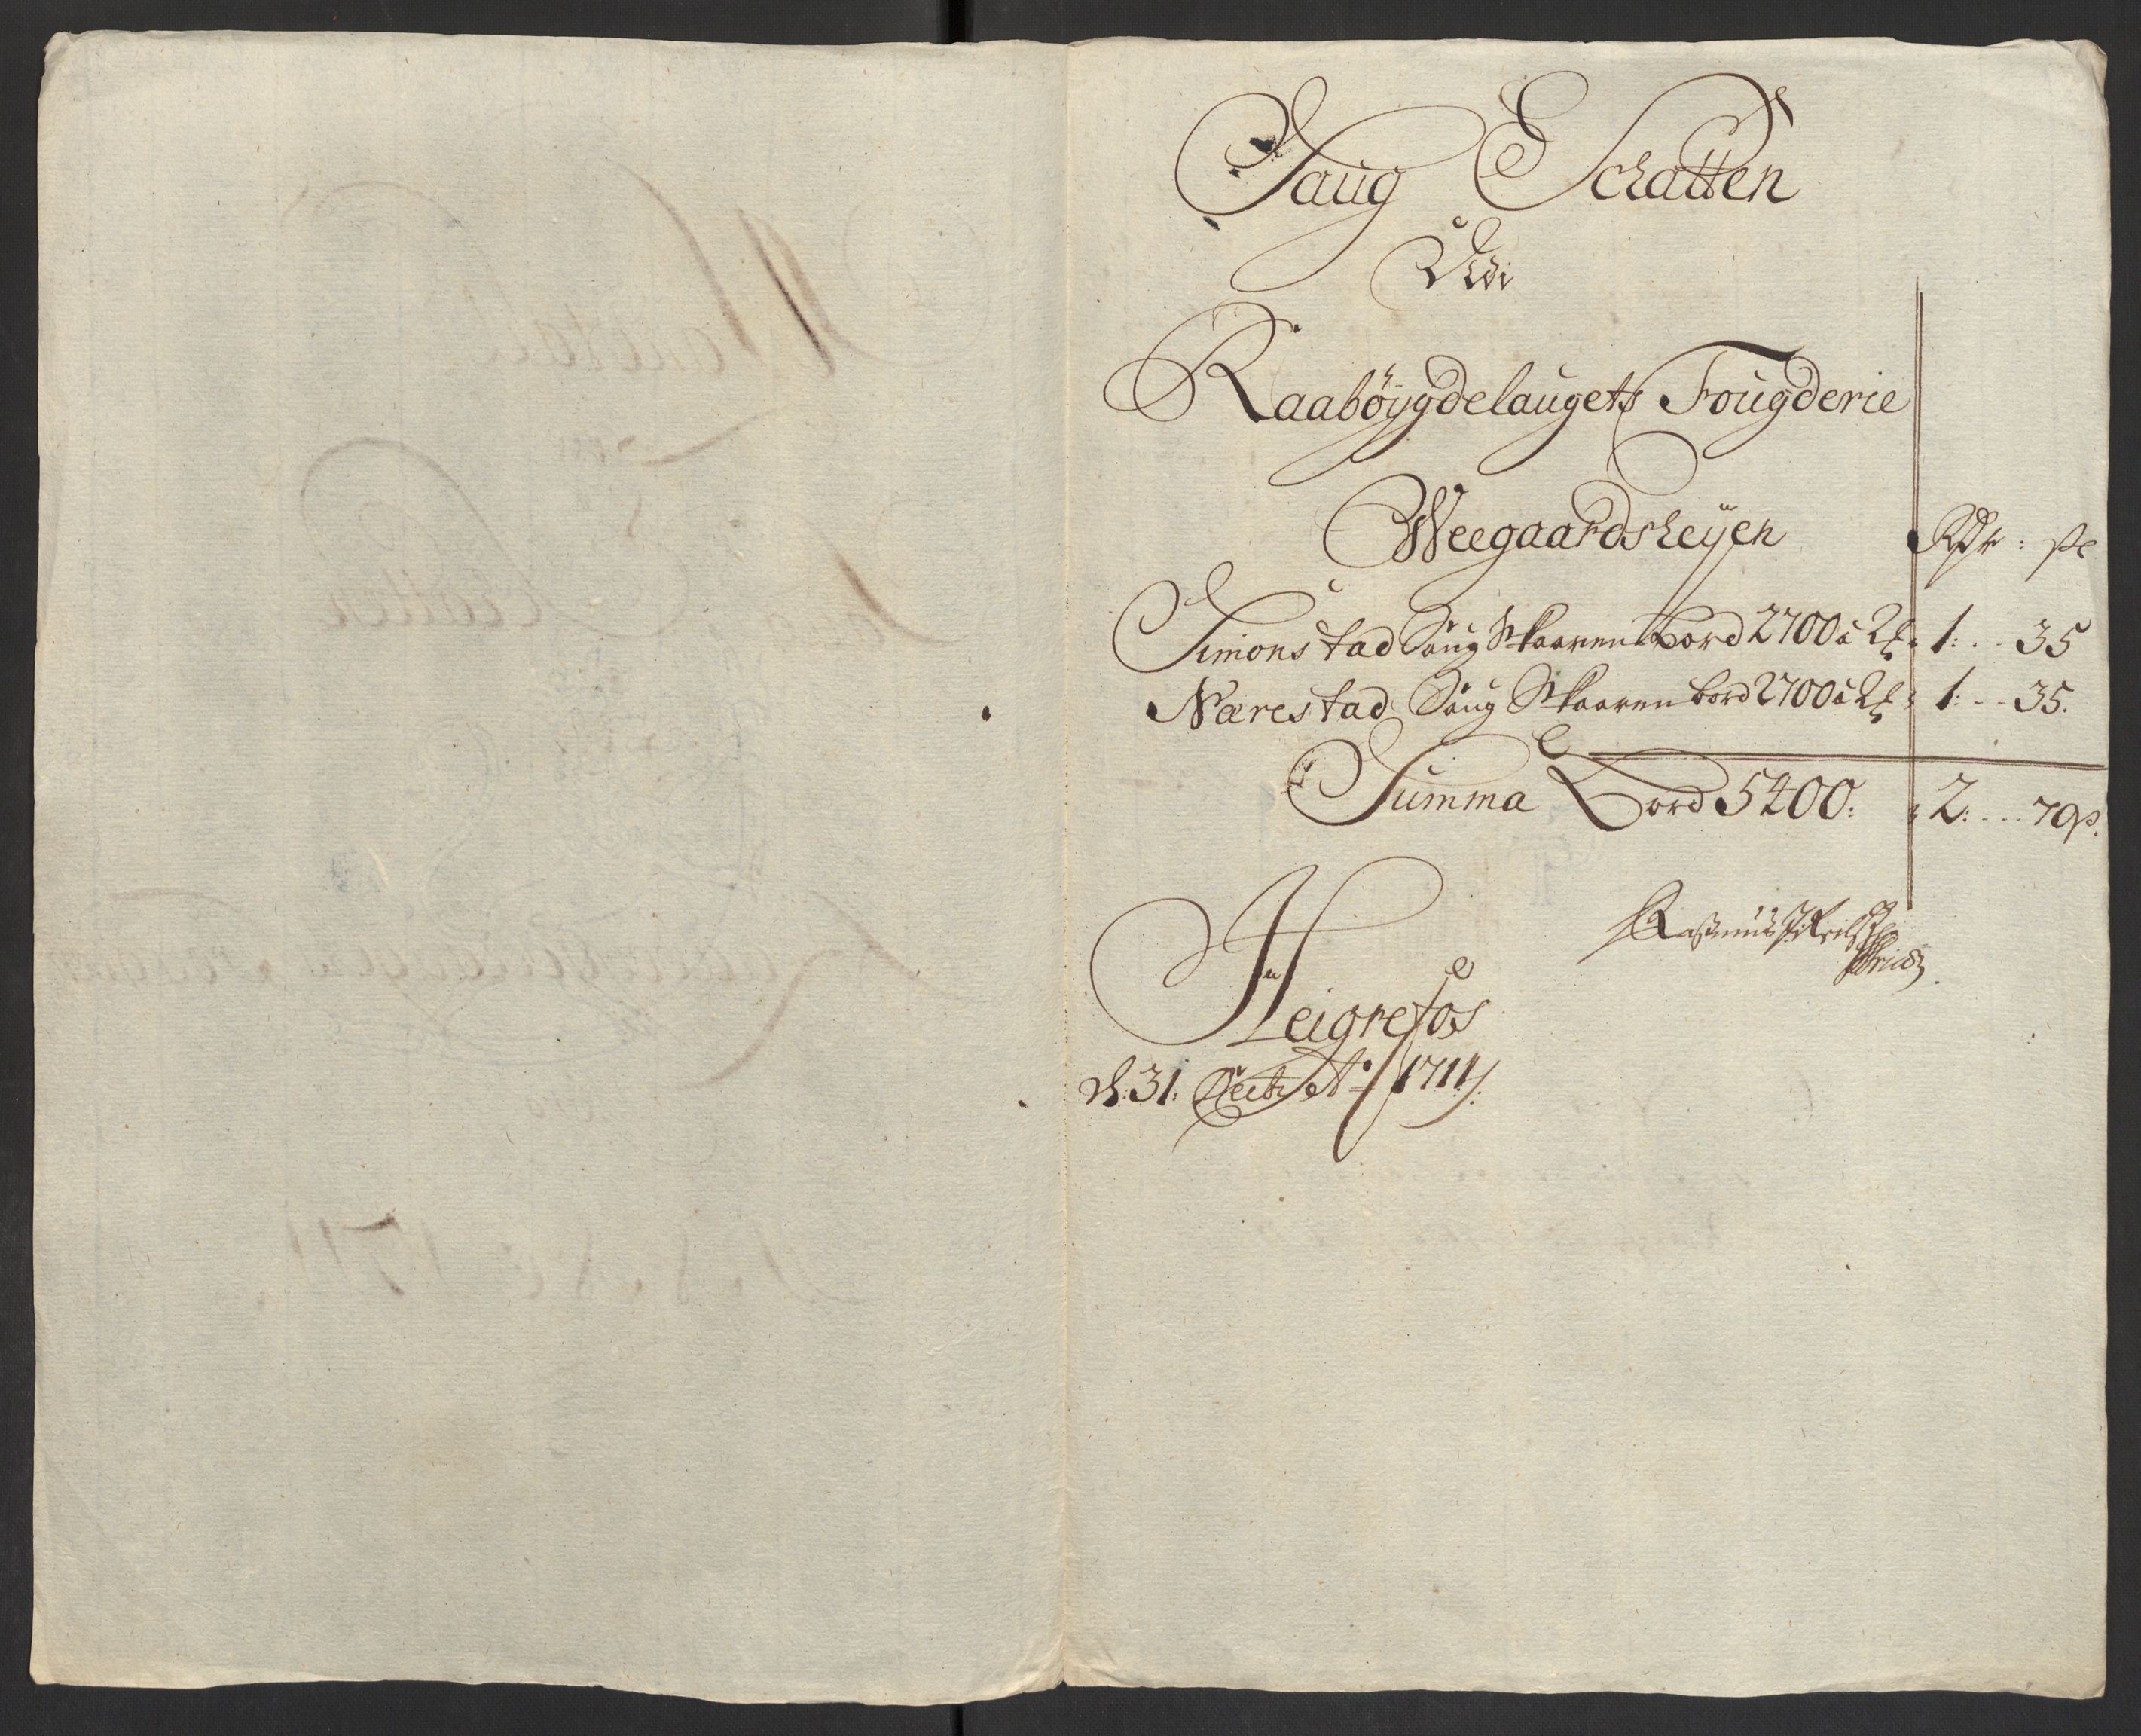 Saug Schatten
Udi
Raabøygdelaugets Fougderie
Weegaardsheÿen Rdr: ß
Simonstad Saug Skaaren bord 2700 à 1: - - 35
Nærestad Saug Skaaren bord 2700 à 1: - - 35.
Summa Bord 5400: 2: - - - 70ß.
Rasmus
Heigrefos
d: 31: Dectr Ao 1711